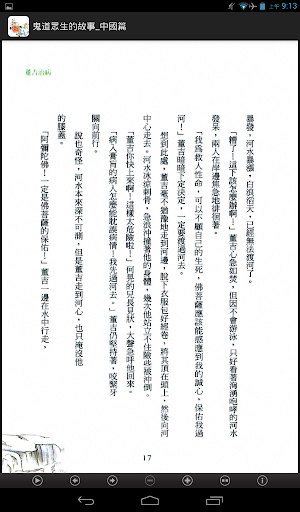 上午 9:13
鬼道眾生的故事_中國篇
董吉治病
暴發，河水暴漲，白浪滔天，已經無法渡河了。
「糟了！這下該怎麼辦啊！」董吉心急如焚，但因不會游泳，只好看著洶湧咆哮的河水
發呆，兩人在岸邊焦急地徘徊著。
「我為救人性命，可以不顧自己的生死，佛菩薩應該能感應到我的誠心，保佑我過
河！」董吉暗暗下定決心，一定要渡過河去。
想到此處，董吉毫不猶豫地走到河邊，脫下衣服包好經卷，將其頂在頭上，然後向河
中心走去。河水冰涼刺骨，急浪沖撞著他的身體，幾次他站立不住險些被沖倒。
「董吉你快上來啊！這樣太危險啦！」何晃的兄長見狀，大聲急呼他回來。
「病入膏肓的病人怎麼能耽誤病情！我先過河去。」董吉仍堅持著，咬緊牙
關向前行。
說也奇怪，河水本來深不可測，但是董吉走到河心，也只淹沒他
的膝蓋。
「阿彌陀佛！一定是佛菩薩的保佑！」董吉一邊在水中行走，
17